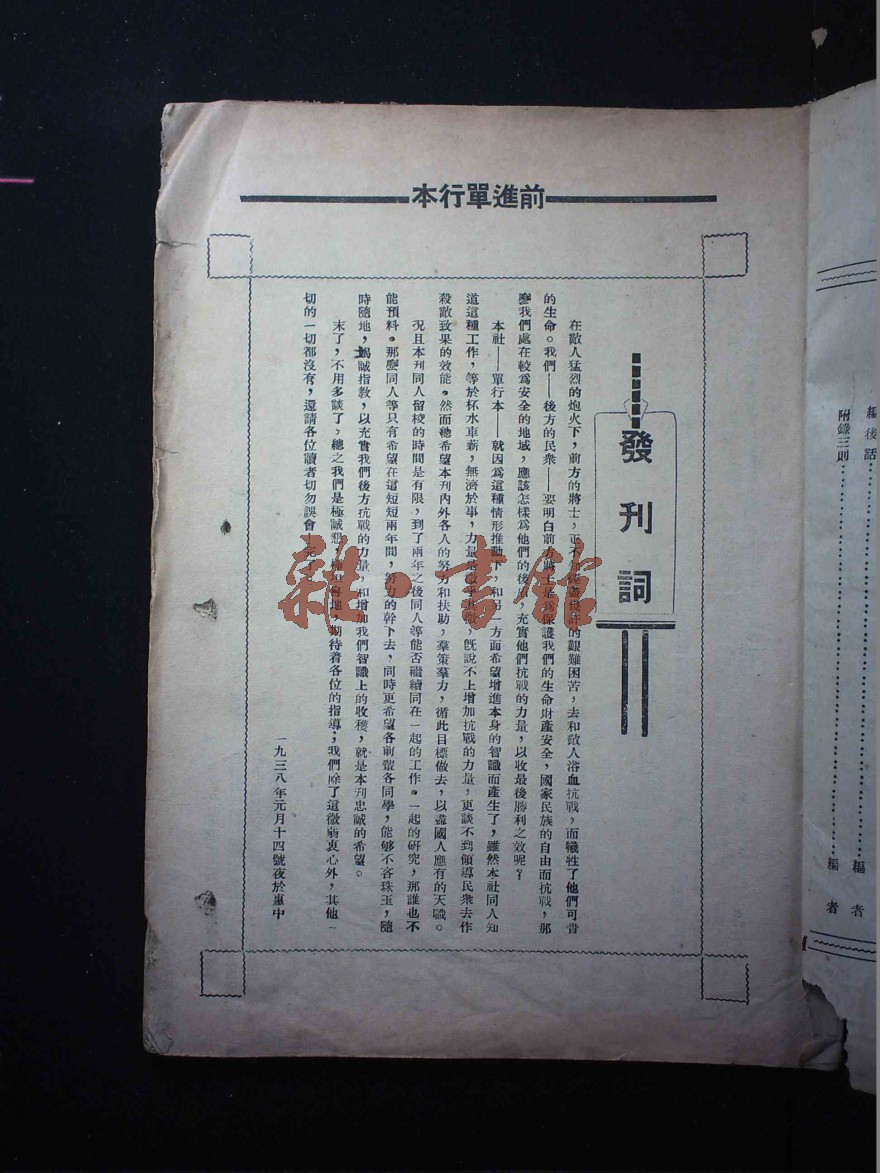 前進單行本
發刊詞
在敵人猛烈的炮火下，前方的將士，正不的艱難困苦，去和敵人浴血抗戰，而犧牲了他們可貴
的生命。我們——後方的民衆——要明白前方將士是爲保護我們的生命財產安全，國家民族的自由而抗戰，那
麼我們處在較爲安全的地域，應該怎樣爲他們的後，充實他們抗戰的力量，以收最後勝利之效呢？
本社——單行本——就因爲這種情形推動下，和另一方面希望增進本身的智識而產生了，雖然本社同人知
道這種工作，等於杯水車薪，無濟於事，力量是，旣說不上增加抗戰的力量，更談不到領導民衆去作
殺敵致果的效能。然而總希望本刊內外各人的努力和扶助，羣策羣力，循此目標做去，以盡國人應有的天職。
况且本刊同人留校的時間是有限，到了兩年之後同人等能否繼續同在一起的工作。一起的研究，那誰也不
能預料。那麼同人等只有希望在這短短兩年間，努力的幹下去，同時更希望各前輩各同學，能够不吝珠玉，隨
時隨地，竭誠指教，以充實我們後方抗戰的力量，和增加我們智識上的收穫，就是本刊忠誠的希望。
末了，不用多談了，總之我們是極誠懇，地，期待着各位的指導；我們除了這微弱衷心外，其他一
切的一切都沒有，還請各位讀者切勿誤會！完了。
一九三八年元月十四號夜於惠中
編後話
編者
附錄三則
編者
雜·書館